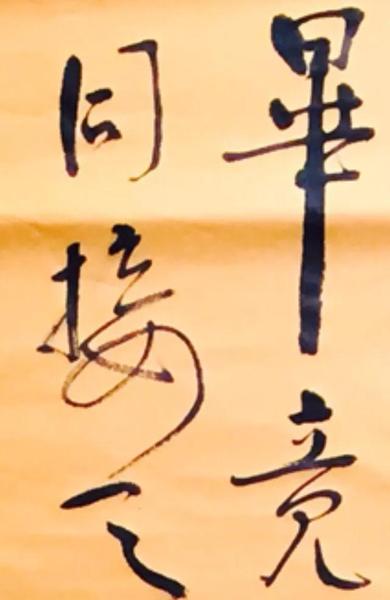 畢竟
同接天